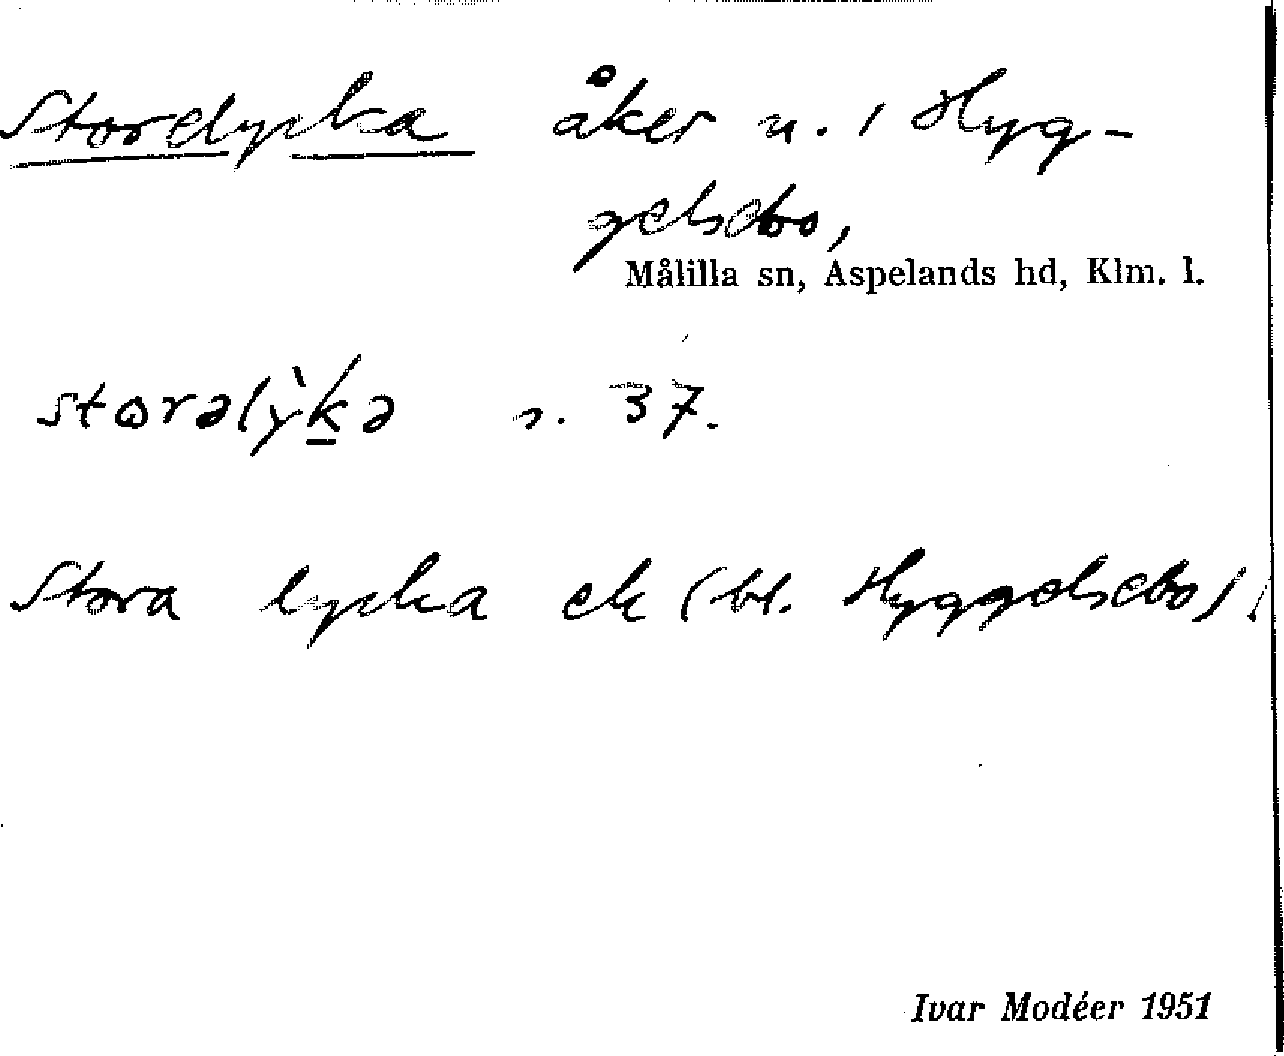 Storelycka åker n. i Hyg-
gelsebo,
Målilla sn, Aspelands hd, Klm. l.
storəlỳk̲ə s. 37.
Stora lycka ek (bl. Hyggelsebo)
Ivar Modéer 1951